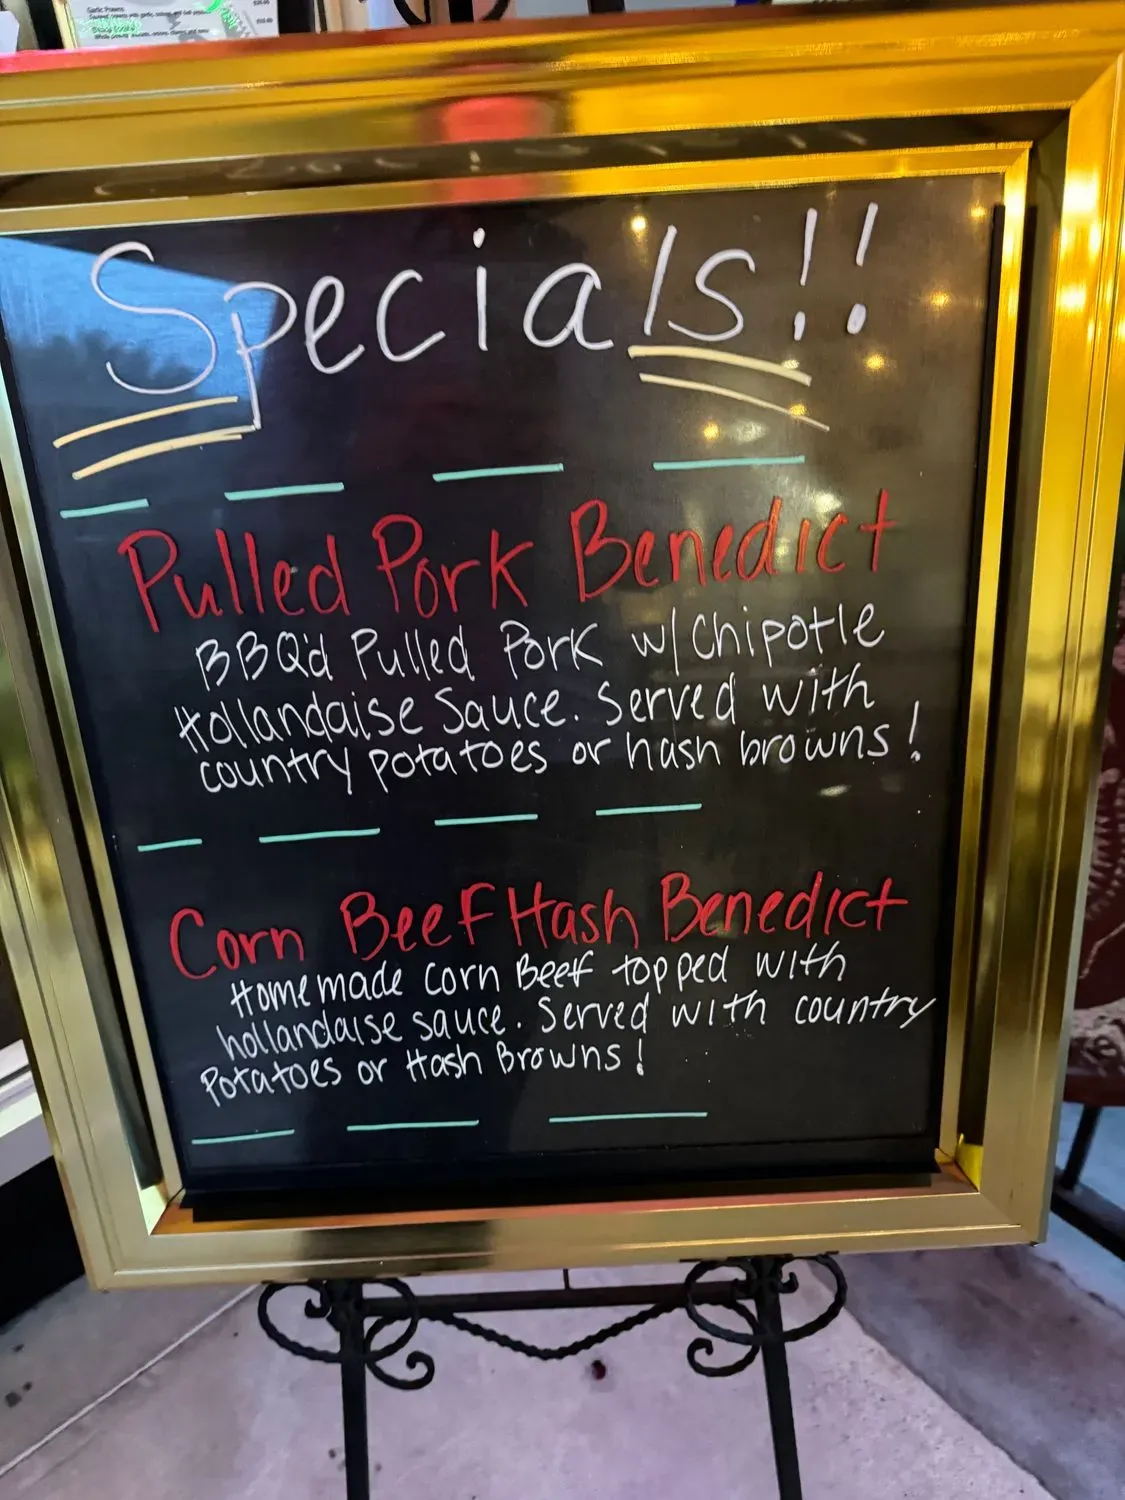 Garlic Prawns
Specials!!
Pulled Pork Benedict
BBQ'd Pulled Pork w/ Chipotle
Hollandaise Sauce. Served with
country potatoes or hash browns!
Corn Beef Hash Benedict
Homemade Corn Beef topped with
hollandaise sauce. Served with country
Potatoes or Hash Browns!